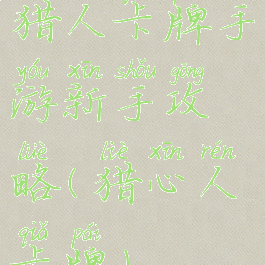 猎人卡牌手
yóu xīn shǒu gōng
游新手攻
lüè liè xīn rén
略(猎心人
qiǎ pái
卡牌)